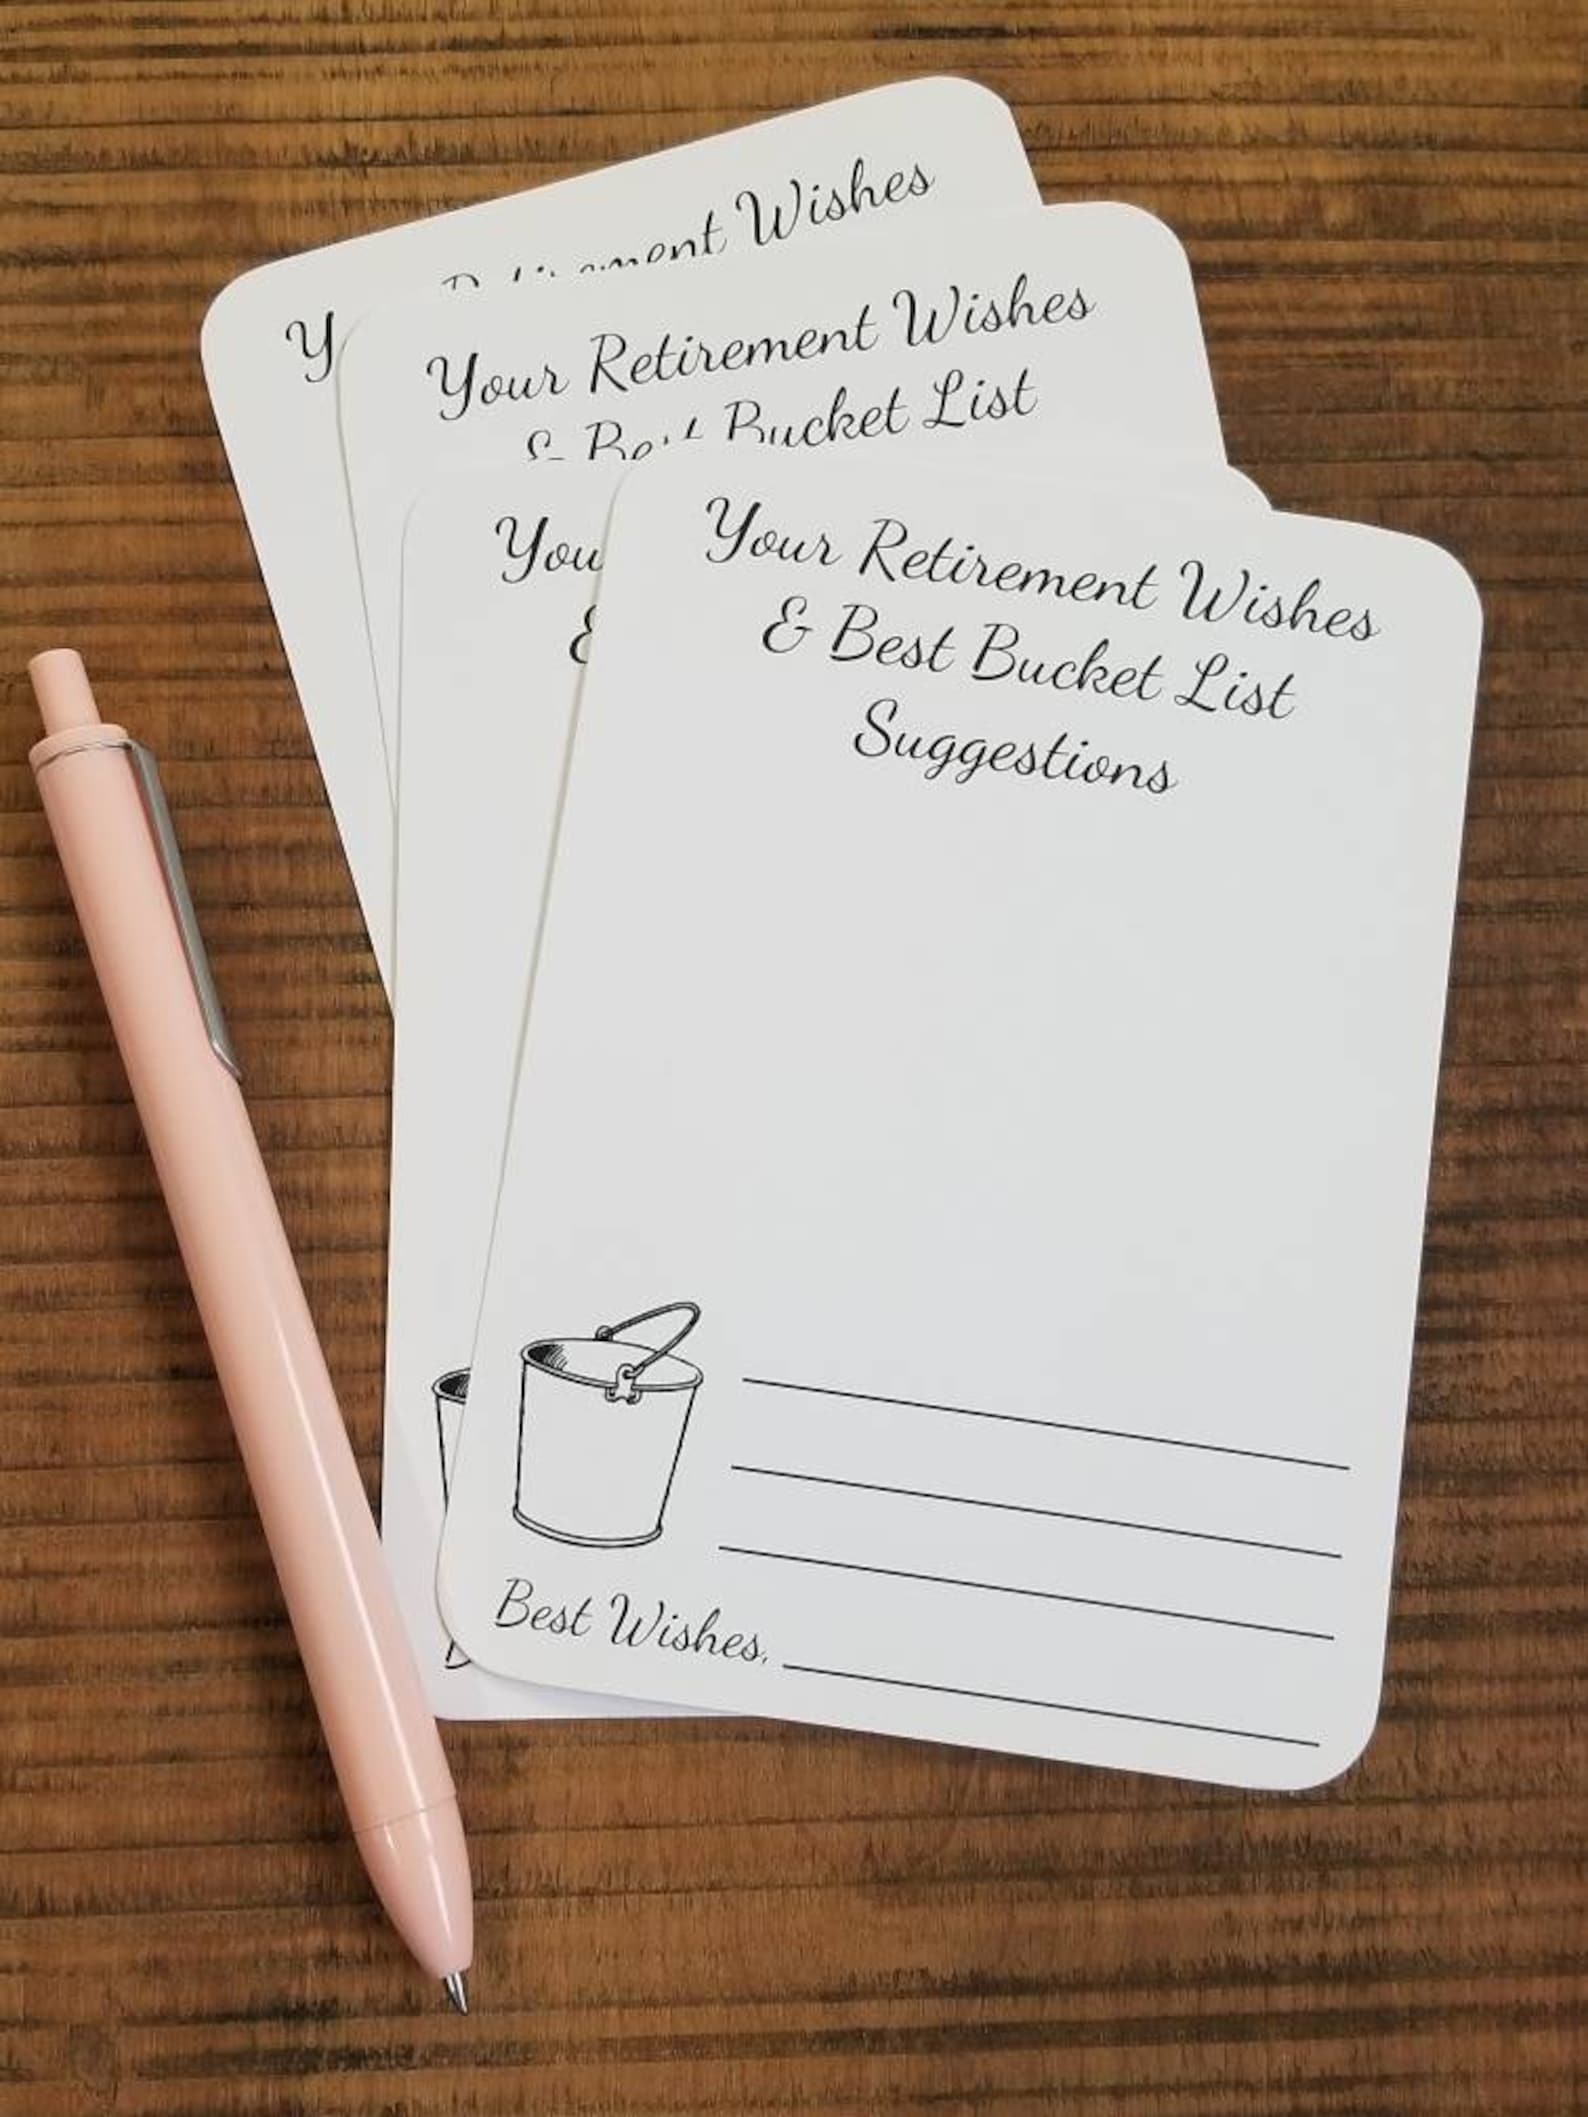 Wishes
Your Retirement Wishes
& Best Bucket List
You
&
Your Retirement Wishes
& Best Bucket List
Suggestions
Best Wishes,